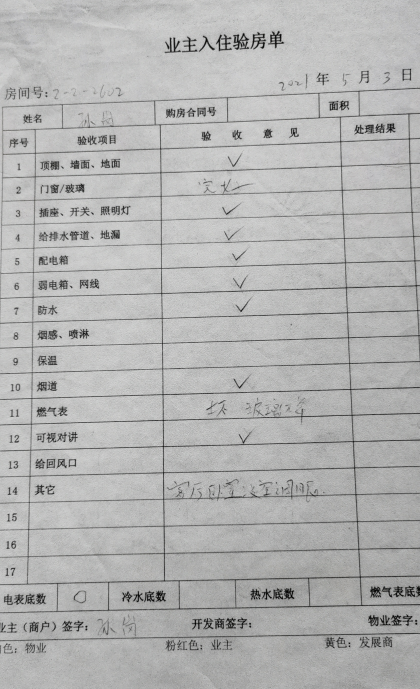 业主入住验房单
房间号: 2-2-2602 2021 年 5 月 3 日
姓名 孙岗 购房合同号 面积
序号 验收项目 验 收 意 见 处理结果
1 顶棚、墙面、地面 ✓
2 门窗/玻璃 完好
3 插座、开关、照明灯 ✓
4 给排水管道、地漏 ✓
5 配电箱 ✓
6 弱电箱、网线 ✓
7 防水 ✓
8 烟感、喷淋
9 保温
10 烟道 ✓
11 燃气表 玻璃
12 可视对讲 ✓
13 给回风口
14 其它 客厅卧室没空调眼.
15
16
17
电表底数 0 冷水底数 热水底数 燃气表底数
业主（商户）签字: 孙岗 开发商签字: 物业签字:
白色: 物业 粉红色: 业主 黄色: 发展商